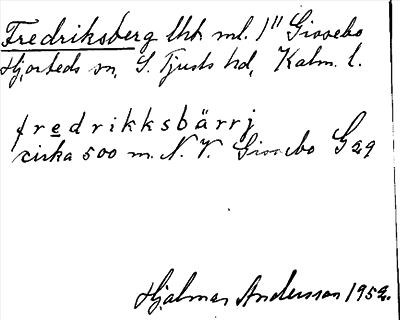 Fredriksberg lht ml. 1" Gissebo
Hjorteds sn, S. Tjusts hd, Kalm. l.
fredrikksbärrj
cirka 500 m. N. V. Gissebo Gag
Hjalmar Andersson 1952.